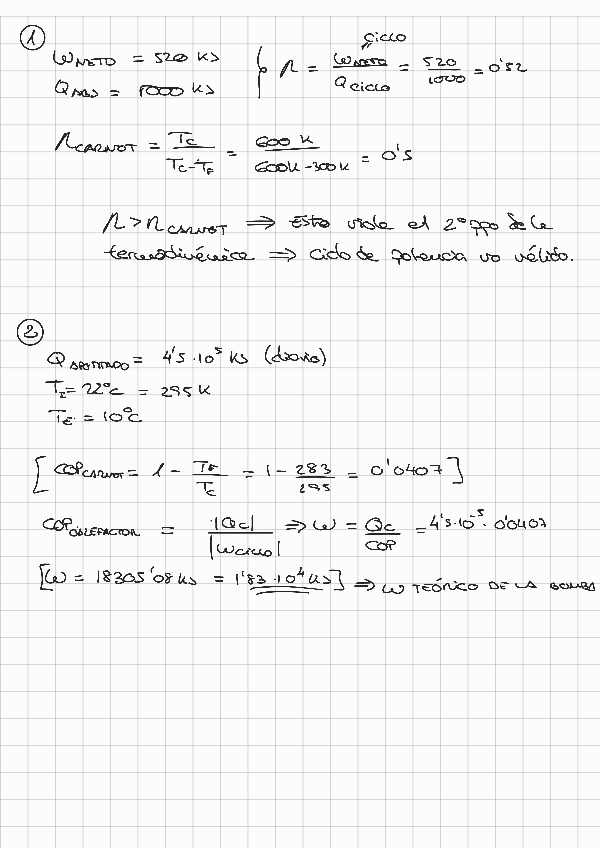 1
ciclo
W_NETO = 520 KJ
η = W_NETO / Q_ciclo = 520 / 1000 = 0'52
Q_ABS = 1000 KJ
η_CARNOT = T_C / (T_C - T_F) = 600 K / (600K - 300K) = 0'5
η > η_CARNOT ⇒ Esto viola el 2º ppo de la
termodinámica ⇒ Ciclo de potencia no válido.
2
Q_APORTADO = 4'5 · 10^5 KJ (diario)
T_I = 22ºC = 295 K
T_E = 10ºC
[COP_CARNOT = 1 - T_F / T_C = 1 - 283 / 295 = 0'0407]
COP_CALEFACTOR = |Q_C| / |W_CICLO| ⇒ W = Q_C / COP = 4'5 · 10^-5 · 0'0407
[W = 18305'08 KJ = 1'83 · 10^4 KJ] ⇒ W TEÓRICO DE LA BOMBA